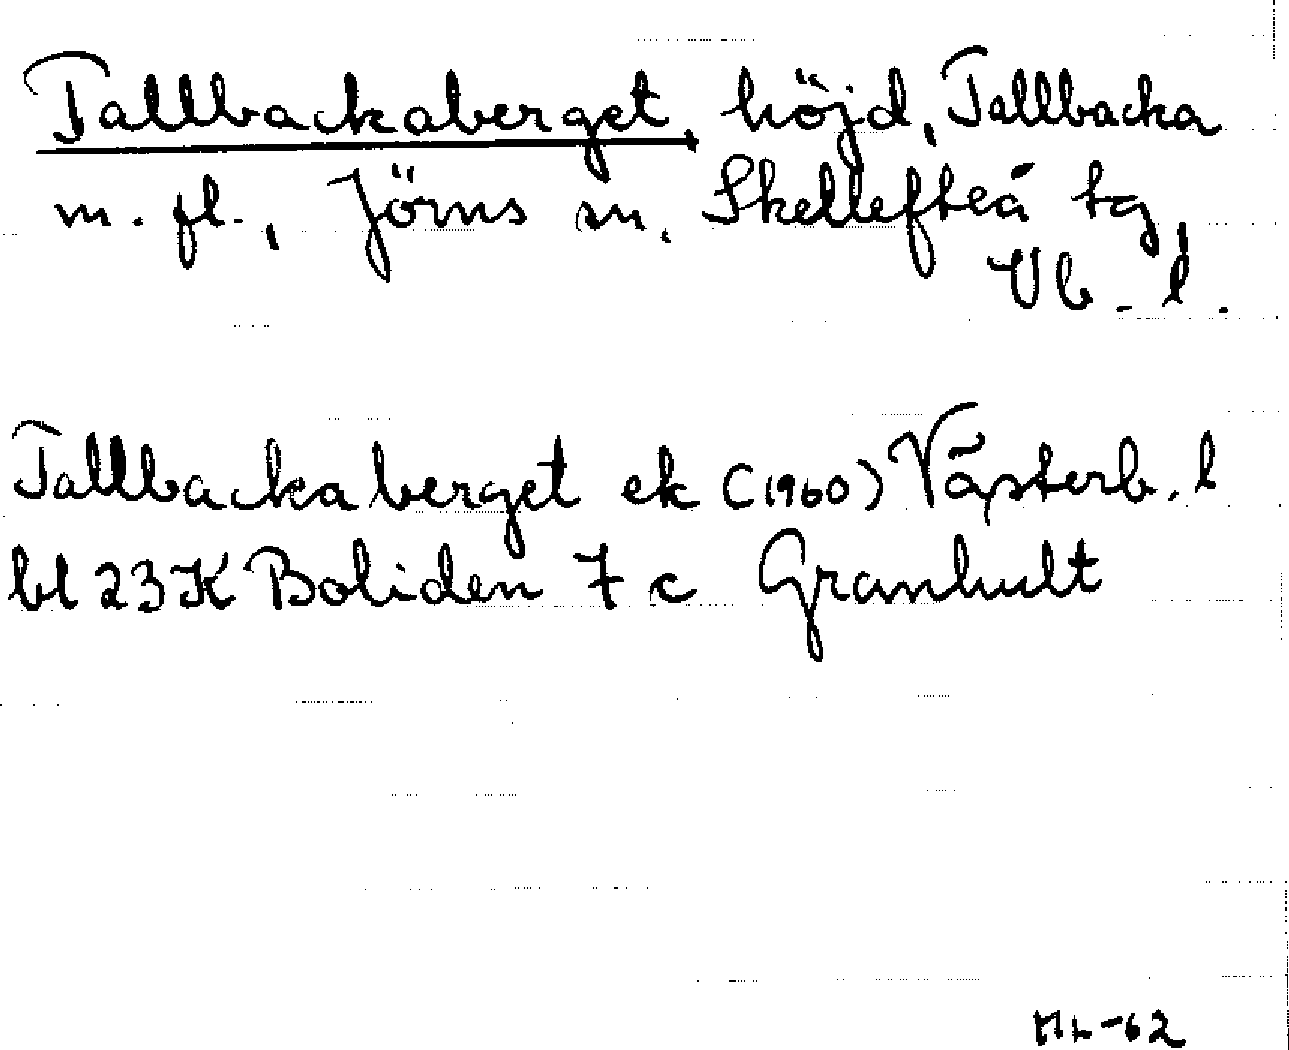 Tallbackaberget, höjd, Tallbacka
m. fl., Jörns sn. Skellefteå tg,
Vb. l.
Tallbackaberget ek (1960) Västerb. l
bl 23K Boliden 7 c Granhult
HL-62